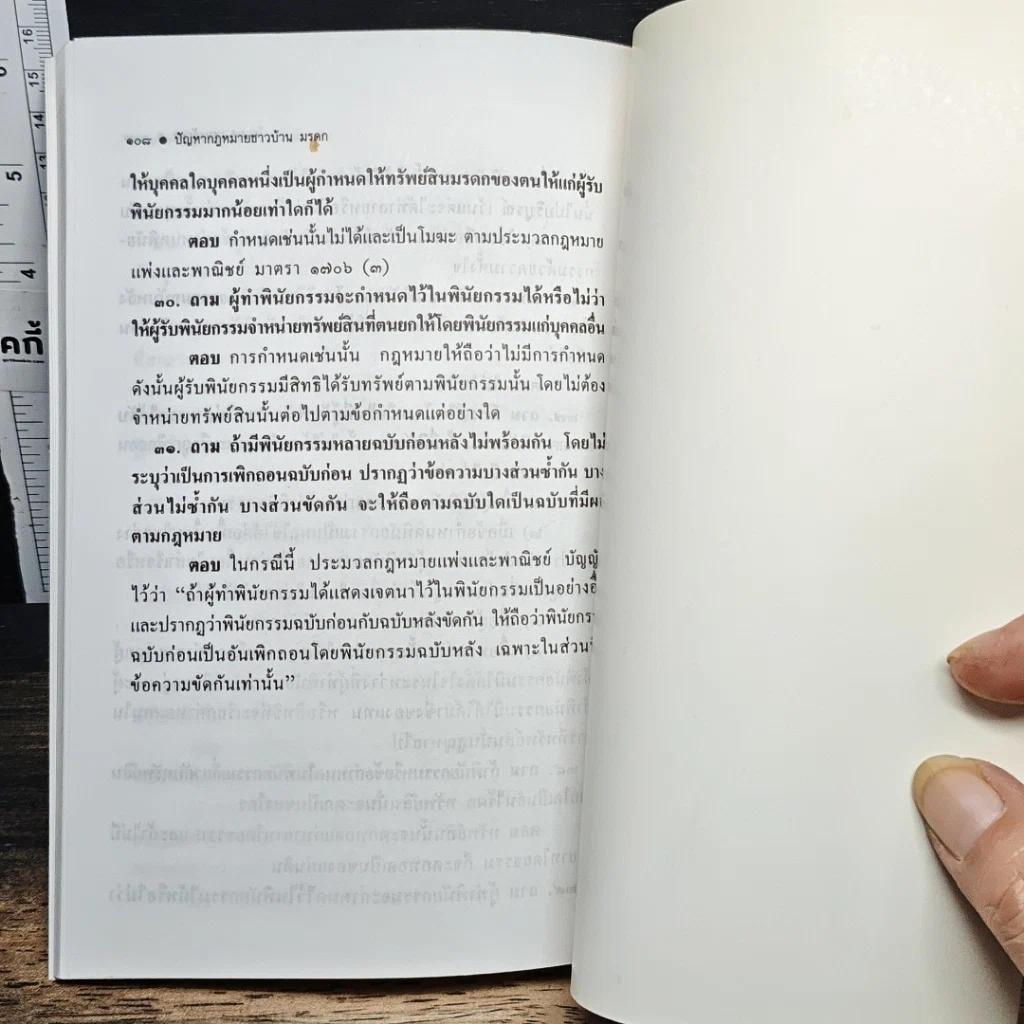 ๑๐๘ ● ปัญหากฎหมายชาวบ้าน มรดก
ให้บุคคลใดบุคคลหนึ่งเป็นผู้กำหนดให้ทรัพย์สินมรดกของตนให้แก่ผู้รับ
พินัยกรรมมากน้อยเท่าใดก็ได้
ตอบ กำหนดเช่นนั้นไม่ได้และเป็นโมฆะ ตามประมวลกฎหมาย
แพ่งและพาณิชย์ มาตรา ๑๗๐๖ (๓)
๓๐. ถาม ผู้ทำพินัยกรรมจะกำหนดไว้ในพินัยกรรมได้หรือไม่ว่า
ให้ผู้รับพินัยกรรมจำหน่ายทรัพย์สินที่ตนยกให้โดยพินัยกรรมแก่บุคคลอื่น
ตอบ การกำหนดเช่นนั้น กฎหมายให้ถือว่าไม่มีการกำหนด
ดังนั้นผู้รับพินัยกรรมมีสิทธิได้รับทรัพย์ตามพินัยกรรมนั้น โดยไม่ต้อง
จำหน่ายทรัพย์สินนั้นต่อไปตามข้อกำหนดแต่อย่างใด
๓๑. ถาม ถ้ามีพินัยกรรมหลายฉบับก่อนหลังไม่พร้อมกัน โดยไม่
ระบุว่าเป็นการเพิกถอนฉบับก่อน ปรากฏว่าข้อความบางส่วนซ้ำกัน บาง
ส่วนไม่ซ้ำกัน บางส่วนขัดกัน จะให้ถือตามฉบับใดเป็นฉบับที่มี
ตามกฎหมาย
ตอบ ในกรณีนี้ ประมวลกฎหมายแพ่งและพาณิชย์
ไว้ว่า “ถ้าผู้ทำพินัยกรรมได้แสดงเจตนาไว้ในพินัยกรรมเป็นอย่าง
และปรากฏว่าพินัยกรรมฉบับก่อนกับฉบับหลังขัดกัน ให้ถือว่า
ฉบับก่อนเป็นอันเพิกถอนโดยพินัยกรรมฉบับหลัง เฉพาะในส่วน
ข้อความขัดกันเท่านั้น”
16
15
5
4
คกี้